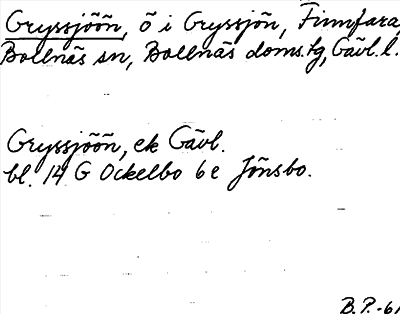 Gryssjöön, ö i Gryssjön, Finnfara,
Bollnäs sn, Bollnäs doms.tg, Gävl.l.
Gryssjöön, ek Gävl.
bl. 14 G Ockelbo 6e Jönsbo.
B.P.-61